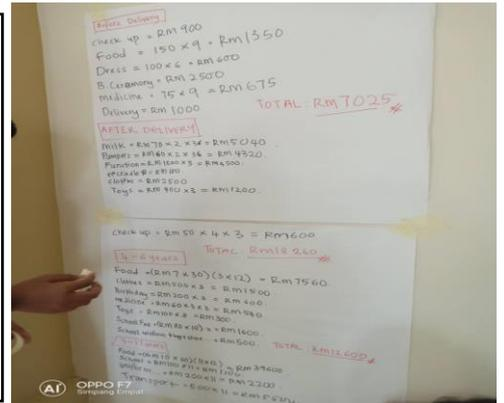 Before Delivery
Check up = RM 900
Food = 150 x 9 = RM1350
Dress = 100 x 6 = RM 600
B. Ceremony = RM 2500
Medicine = 75 x 9 = RM 675
Delivery = RM 1000
TOTAL: RM7025
AFTER DELIVERY
Milk = RM 70 x 2 x 36 = RM5040
Pampers = RM 60 x 2 x 36 = RM 4320
Function = RM 1500 x 3 = RM4500
Clothes = RM 2500
Toys = RM 400 x 3 = RM1200
Check up = RM 50 x 4 x 3 = RM600
TOTAL: RM18 260
4-6 years
Food = (RM 7 x 30) (3 x 12) = RM 7560
Clothes = RM 500 x 3 = RM 1500
Birthday = RM 200 x 3 = RM 600
Toys = RM100 x 3 = RM300
School Fee = (RM 80 x 10) x = RM1600
School = RM500
TOTAL: RM12600
Food = = RM39600
School = RM100 x 11 = RM1100
Uniform = RM 200 x 11 = RM 2200
Transport =
AI OPPO F7
Simpang Empat